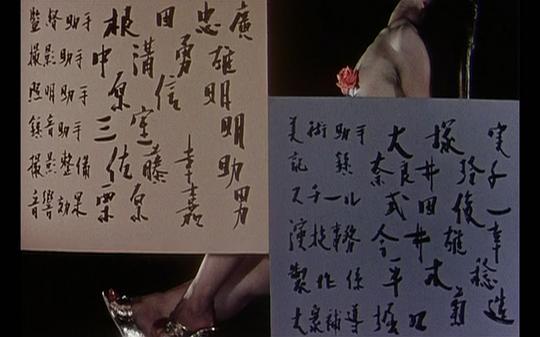 監督助手 根田忠廣
撮影助手 中溝勇雄
照明助手 原信明
録音助手 三 明
撮影整備 佐藤幸助
音響効果 栗原嘉男
美術助手 大塚
記録 奈良井 子
スチール 式田俊一
演技事務 今井雄幸
製作係 半 稔
大衆補導 堀 造